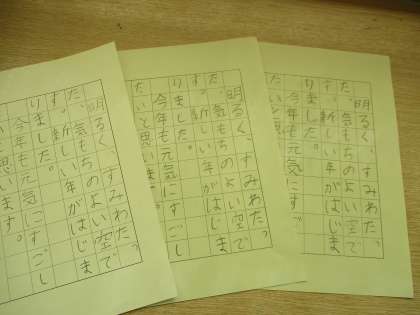 明るく、すみわたっ
た、気もちのよい空で
す。新しい年がはじま
りました。
今年も元気にすご
たいと思
明るく、すみわたっ
た、気もちのよい空で
す。新しい年がはじま
りました。
今年も元気にすごし
たいと思います。
明るく、すみわたっ
た、気もちのよい空で
す。新しい年がはじま
りました。
今年も元気にすごし
いと思います。